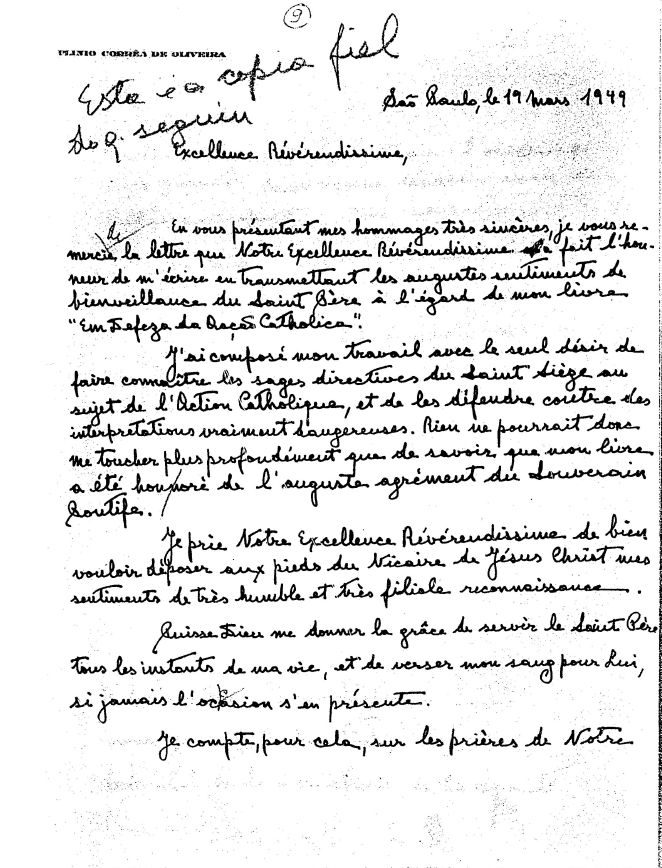 9
PLINIO CORRÊA DE OLIVEIRA
Esta é a copia fiel
do q. seguiu
São Paulo, le 19 mars 1949
Excellence Révérendissime,
En vous présentant mes hommages très sincères, je vous re-
mercie de la lettre que Votre Excellence Révérendissime a fait l'hon-
neur de m'écrire en transmettant les augustes sentiments de
bienveillance du Saint Père à l'égard de mon livre
"Em Defeza da Acção Catholica".
J'ai composé mon travail avec le seul désir de
faire connaître les sages directives du Saint Siège au
sujet de l'Action Catholique, et de les défendre contre des
interprétations vraiment dangereuses. Rien ne pourrait donc
me toucher plus profondément que de savoir que mon livre
a été honnoré de l'auguste agrément du Souverain
Pontife.
Je prie Votre Excellence Révérendissime de bien
vouloir déposer aux pieds du Vicaire de Jésus Christ mes
sentiments de très humble et très filiale reconnaissance.
Puisse Dieu me donner la grâce de servir le Saint Père
tous les instants de ma vie, et de verser mon sang pour Lui,
si jamais l'ocasion s'en présente.
Je compte, pour cela, sur les prières de Votre